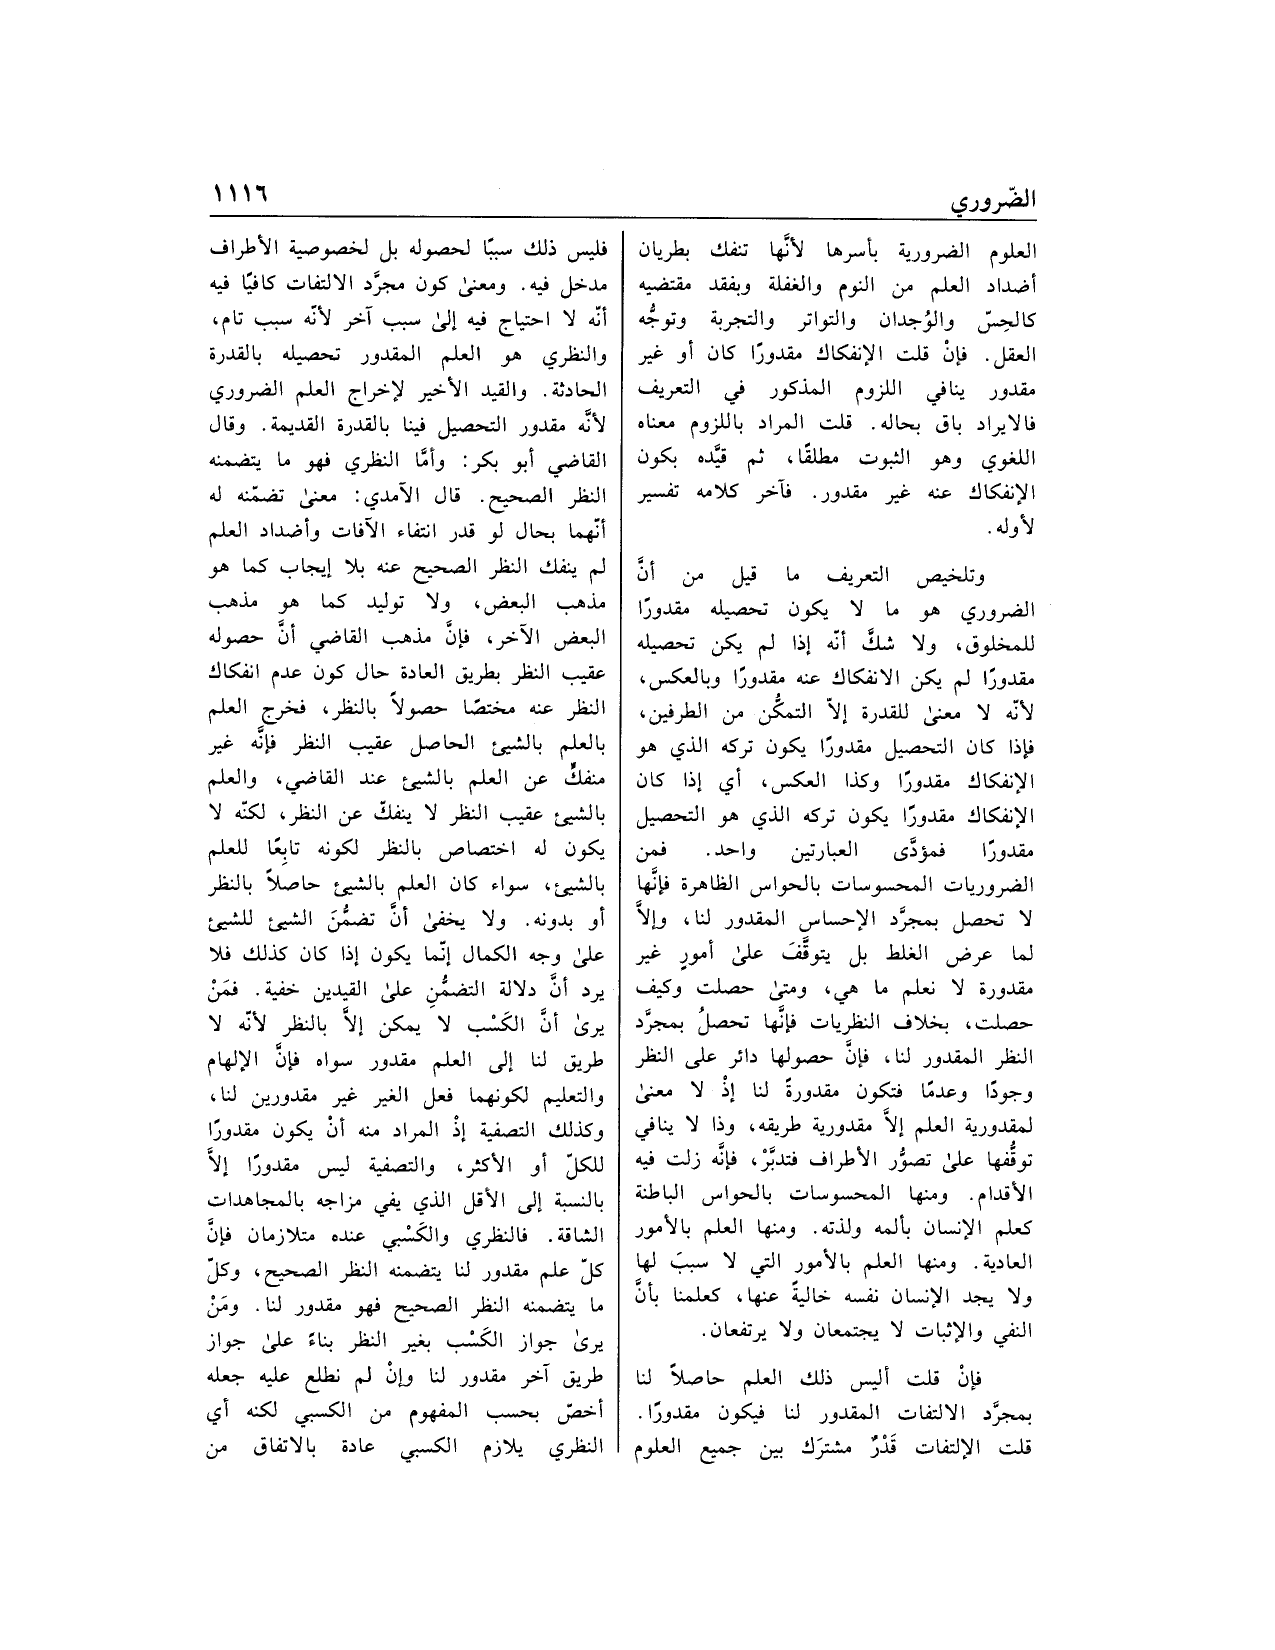 الضّروري
١١١٦
العلوم الضرورية بأسرها لأنَّها تنفك بطريان
أضداد العلم من النوم والغفلة وبفقد مقتضيه
كالحسّ والوُجدان والتواتر والتجربة وتوجُّه
العقل. فإنْ قلت الإنفكاك مقدورًا كان أو غير
مقدور ينافي اللزوم المذكور في التعريف
فالايراد باق بحاله. قلت المراد باللزوم معناه
اللغوي وهو الثبوت مطلقًا، ثم قيَّده بكون
الإنفكاك عنه غير مقدور. فآخر كلامه تفسير
لأوله.
وتلخيص التعريف ما قيل من أنَّ
الضروري هو ما لا يكون تحصيله مقدورًا
للمخلوق، ولا شكَّ أنّه إذا لم يكن تحصيله
مقدورًا لم يكن الانفكاك عنه مقدورًا وبالعكس،
لأنّه لا معنىٰ للقدرة إلاّ التمكُّن من الطرفين،
فإذا كان التحصيل مقدورًا يكون تركه الذي هو
الإنفكاك مقدورًا وكذا العكس، أي إذا كان
الإنفكاك مقدورًا يكون تركه الذي هو التحصيل
مقدورًا فمؤدَّى العبارتين واحد. فمن
الضروريات المحسوسات بالحواس الظاهرة فإنَّها
لا تحصل بمجرَّد الإحساس المقدور لنا، وإلاَّ
لما عرض الغلط بل يتوقَّفَ علىٰ أمورٍ غير
مقدورة لا نعلم ما هي، ومتىٰ حصلت وكيف
حصلت، بخلاف النظريات فإنَّها تحصلُ بمجرَّد
النظر المقدور لنا، فإنَّ حصولها دائر على النظر
وجودًا وعدمًا فتكون مقدورةً لنا إذْ لا معنىٰ
لمقدورية العلم إلاَّ مقدورية طريقه، وذا لا ينافي
توقُّفها علىٰ تصوُّر الأطراف فتدبَّرْ، فإنَّه زلت فيه
الأقدام. ومنها المحسوسات بالحواس الباطنة
كعلم الإنسان بألمه ولذته. ومنها العلم بالأمور
العادية. ومنها العلم بالأمور التي لا سببَ لها
ولا يجد الإنسان نفسه خاليةً عنها، كعلمنا بأنَّ
النفي والإثبات لا يجتمعان ولا يرتفعان.
فإنْ قلت أليس ذلك العلم حاصلاً لنا
بمجرَّد الالتفات المقدور لنا فيكون مقدورًا.
قلت الإلتفات قَدْرٌ مشترَك بين جميع العلوم
فليس ذلك سببًا لحصوله بل لخصوصية الأطراف
مدخل فيه. ومعنىٰ كون مجرَّد الالتفات كافيًا فيه
أنّه لا احتياج فيه إلىٰ سبب آخر لأنّه سبب تام،
والنظري هو العلم المقدور تحصيله بالقدرة
الحادثة. والقيد الأخير لإخراج العلم الضروري
لأنَّه مقدور التحصيل فينا بالقدرة القديمة. وقال
القاضي أبو بكر: وأمَّا النظري فهو ما يتضمنه
النظر الصحيح. قال الآمدي: معنىٰ تضمّنه له
أنّهما بحال لو قدر انتفاء الآفات وأضداد العلم
لم ينفك النظر الصحيح عنه بلا إيجاب كما هو
مذهب البعض، ولا توليد كما هو مذهب
البعض الآخر، فإنَّ مذهب القاضي أنَّ حصوله
عقيب النظر بطريق العادة حال كون عدم انفكاك
النظر عنه مختصًا حصولاً بالنظر، فخرج العلم
بالعلم بالشيئ الحاصل عقيب النظر فإنَّه غير
منفكٌ عن العلم بالشيئ عند القاضي، والعلم
بالشيئ عقيب النظر لا ينفكّ عن النظر، لكنّه لا
يكون له اختصاص بالنظر لكونه تابِعًا للعلم
بالشيئ، سواء كان العلم بالشيئ حاصلاً بالنظر
أو بدونه. ولا يخفىٰ أنَّ تضمُّنَ الشيئ للشيئ
علىٰ وجه الكمال إنّما يكون إذا كان كذلك فلا
يرد أنَّ دلالة التضمُّنِ علىٰ القيدين خفية. فمَنْ
يرىٰ أنَّ الكَسْب لا يمكن إلاَّ بالنظر لأنّه لا
طريق لنا إلى العلم مقدور سواه فإنَّ الإلهام
والتعليم لكونهما فعل الغير غير مقدورين لنا،
وكذلك التصفية إذْ المراد منه أنْ يكون مقدورًا
للكلّ أو الأكثر، والتصفية ليس مقدورًا إلاَّ
بالنسبة إلى الأقل الذي يفي مزاجه بالمجاهدات
الشاقة. فالنظري والكَسْبي عنده متلازمان فإنَّ
كلّ علم مقدور لنا يتضمنه النظر الصحيح، وكلّ
ما يتضمنه النظر الصحيح فهو مقدور لنا. ومَنْ
يرىٰ جواز الكَسْب بغير النظر بناءً علىٰ جواز
طريق آخر مقدور لنا وإنْ لم نطلع عليه جعله
أخصّ بحسب المفهوم من الكسبي لكنه أي
النظري يلازم الكسبي عادة بالاتفاق من